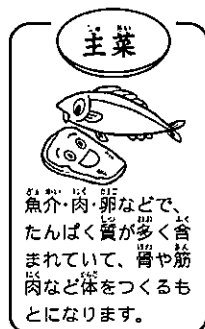 主菜
魚介・肉・卵などで、
たんぱく質が多く含
まれていて、骨や筋
肉など体をつくるも
とになります。